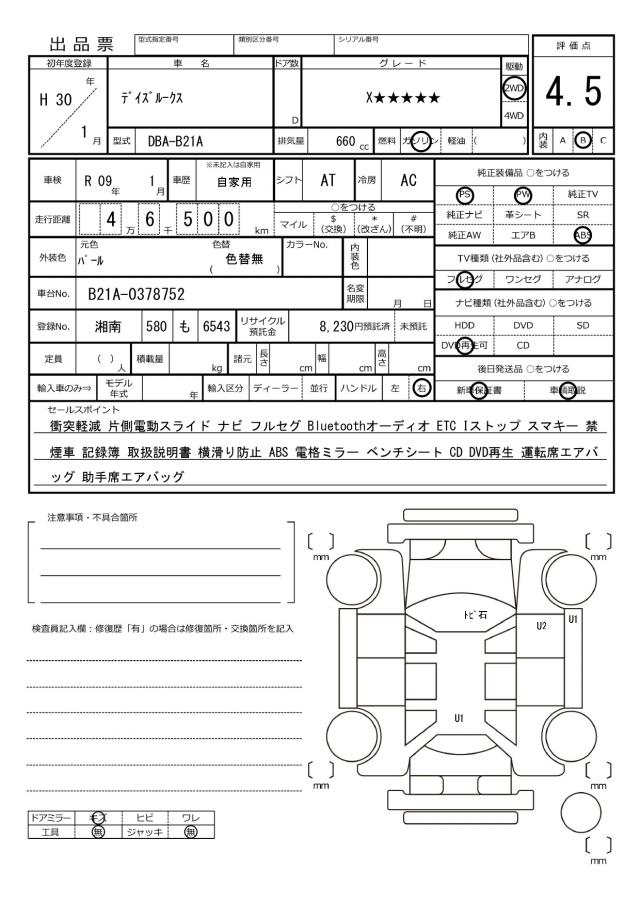 出品票
型式指定番号 類別区分番号 シリアル番号
評価点
4.5
初年度登録 車名 ドア数 グレード 駆動
H 30 年 デイズルークス D X★★★★★ 2WD
4WD
1 月 型式 DBA-B21A 排気量 660 cc 燃料 ガソリン 軽油 ( ) 内装 A B C
車検 R 09 年 1 月 車歴 ※未記入は自家用 自家用 シフト AT 冷房 AC
走行距離 4 万 6 千 5 0 0 km
○をつける
マイル $(交換) *(改ざん) #(不明)
外装色 元色 パール 色替 色替無 ( ) カラーNo. 内装色
車台No. B21A-0378752 名変期限 月 日
登録No. 湘南 580 も 6543 リサイクル預託金 8,230円預託済 未預託
定員 ( ) 人 積載量 kg 諸元 長さ cm 幅 cm 高さ cm
輸入車のみ⇒ モデル年式 年 輸入区分 ディーラー 並行 ハンドル 左 右
純正装備品 ○をつける
PS PW 純正TV
純正ナビ 革シート SR
純正AW エアB ABS
TV種類(社外品含む)○をつける
フルセグ ワンセグ アナログ
ナビ種類(社外品含む)○をつける
HDD DVD SD
DVD再生可 CD
後日発送品 ○をつける
新車保証書 車輌取説
セールスポイント
衝突軽減 片側電動スライド ナビ フルセグ Bluetoothオーディオ ETC Iストップ スマキー 禁
煙車 記録簿 取扱説明書 横滑り防止 ABS 電格ミラー ベンチシート CD DVD再生 運転席エアバ
ッグ 助手席エアバッグ
注意事項・不具合箇所
検査員記入欄：修復歴「有」の場合は修復箇所・交換箇所を記入
mm
mm
トビ石
U2
U1
U1
mm
mm
mm
ドアミラー キズ ヒビ ワレ
工具 無 ジャッキ 無